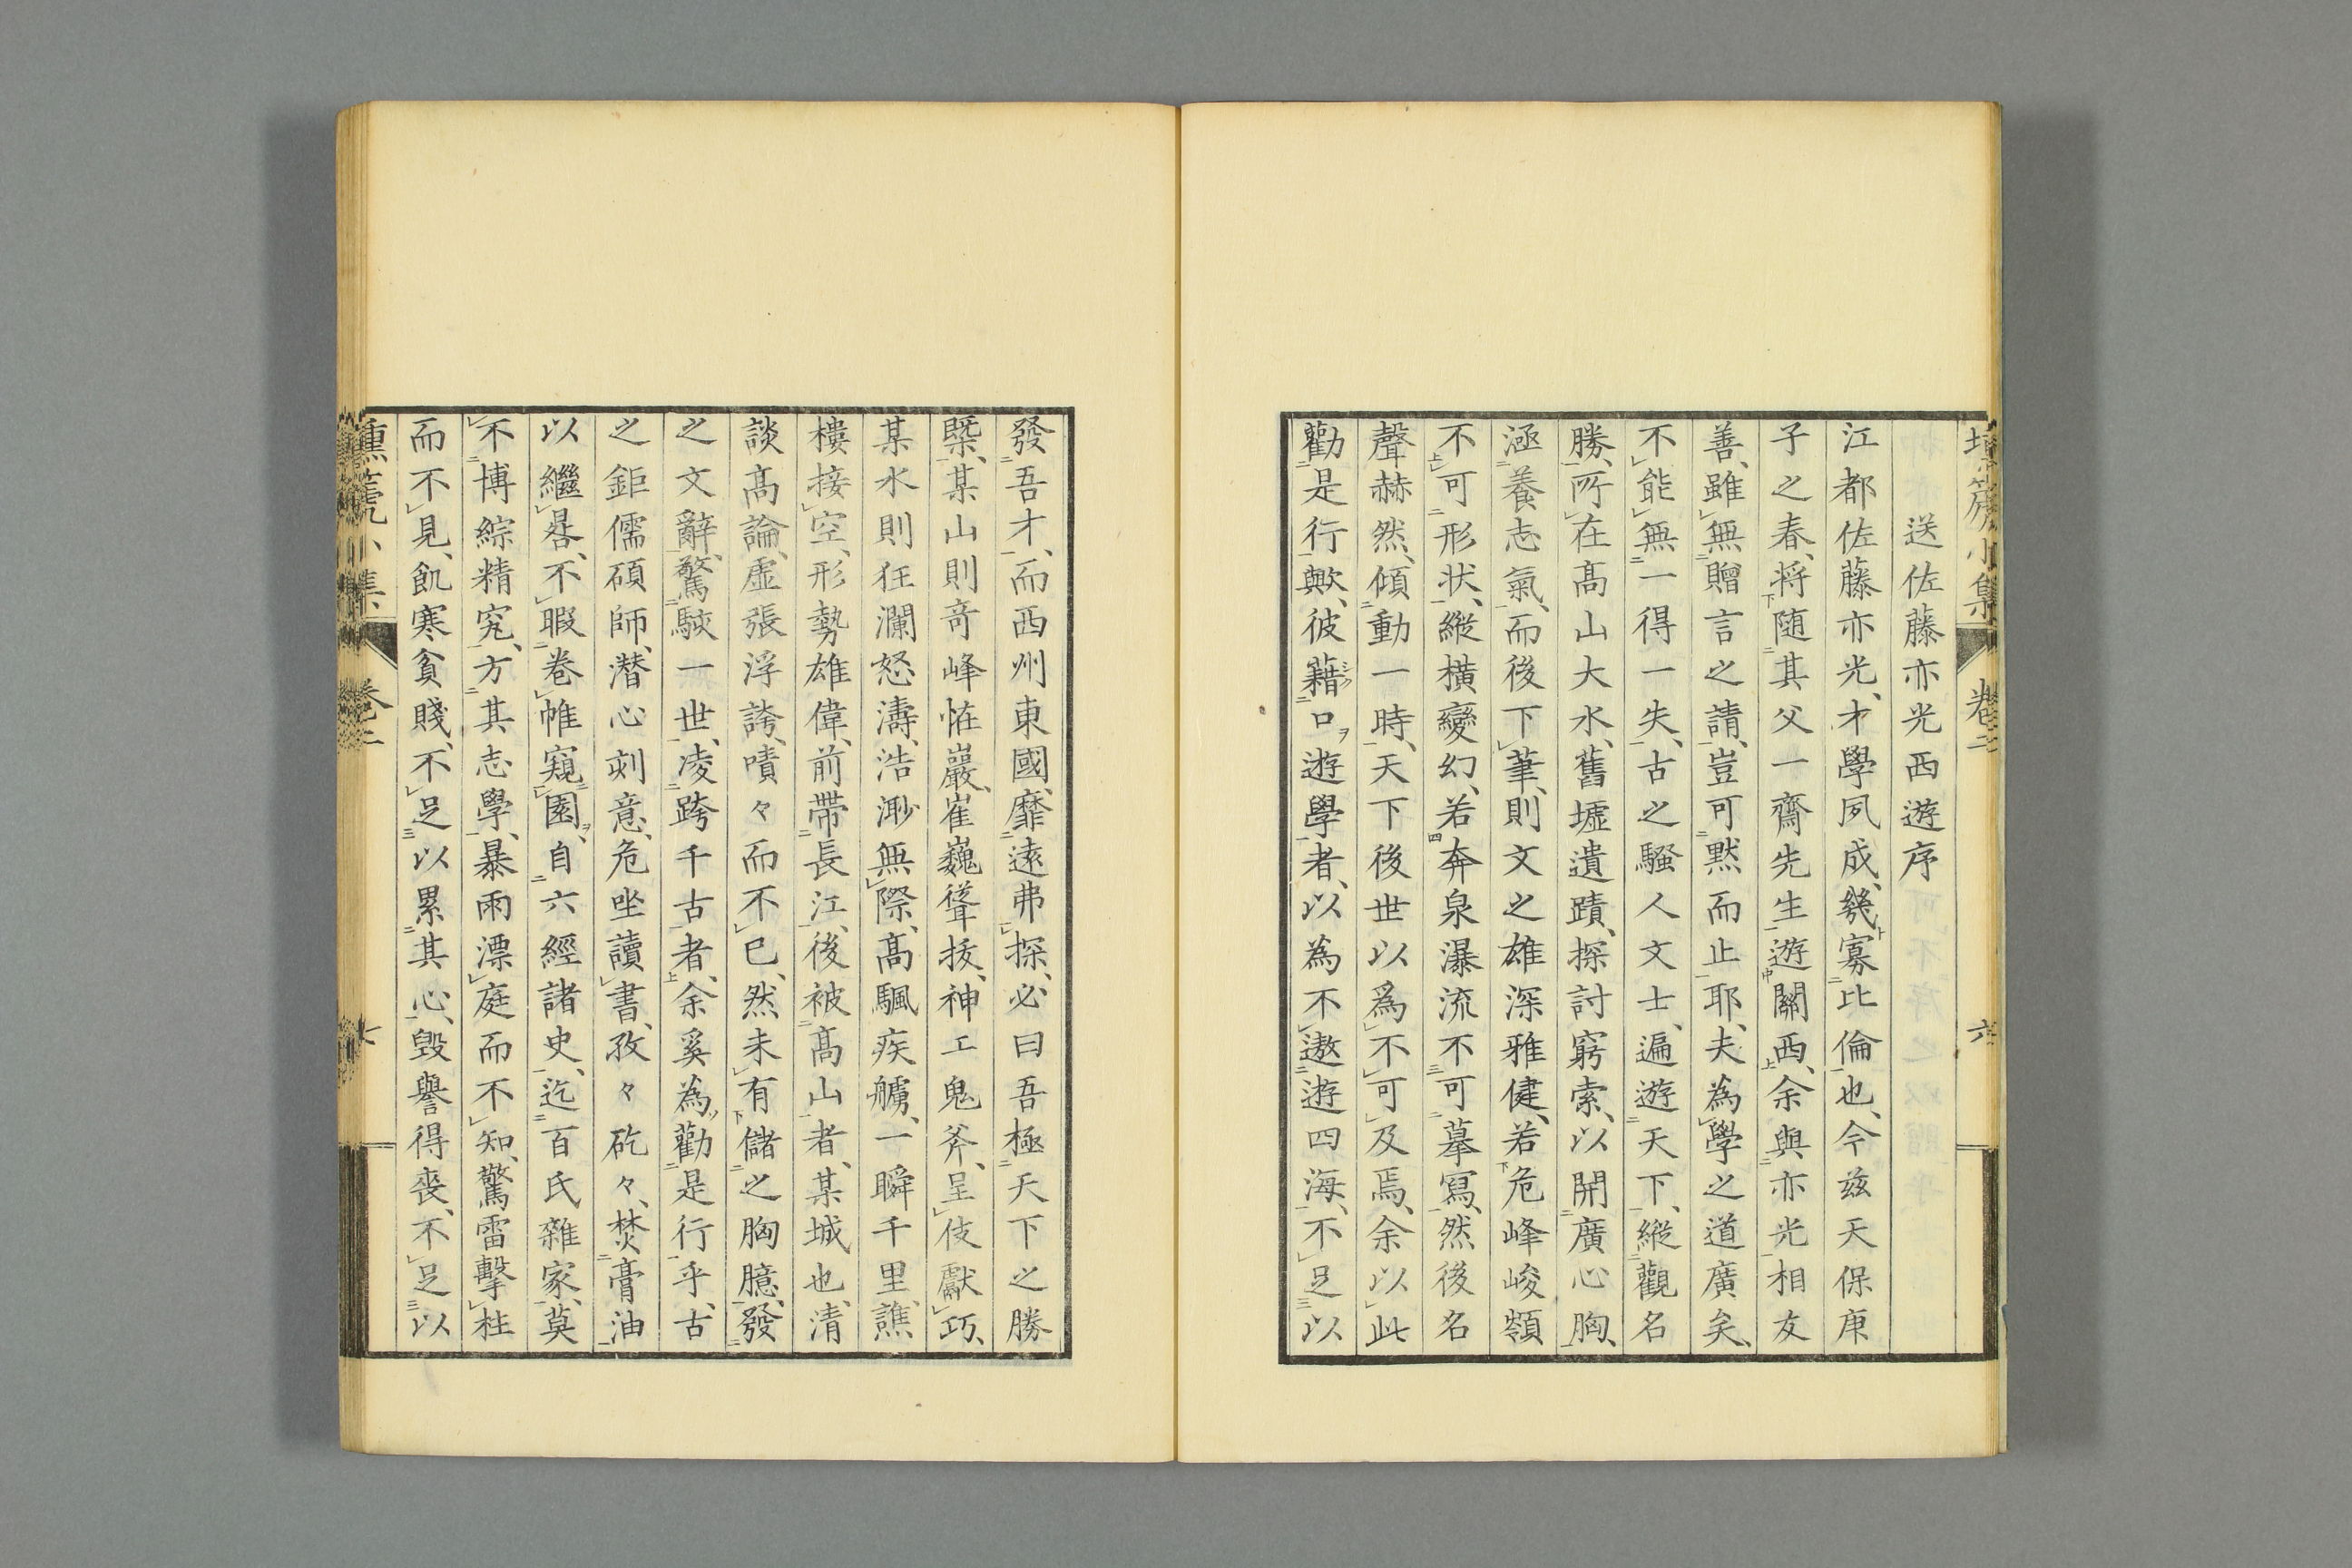 送佐藤亦光西遊序
江都佐藤亦光、才學夙成、幾寡比倫也、今茲天保庚
子之春、将随其父一齋先生遊關西、余與亦光相友
善、雖無贈言之請、豈可默而止耶、夫為學之道廣矣、
不能無一得一失、古之騷人文士、遍遊天下、縱觀名
勝、所在高山大水、舊墟遺蹟、探討窮索、以開廣心胸、
涵養志氣、而後下筆、則文之雄深雅健、若危峰峻嶺
不可形状、縱横變幻、若奔泉瀑流不可摹寫、然後名
聲赫然、傾動一時、天下後世以爲不可及焉、余以此
勸是行歟、彼藉口遊學者、以為不遨遊四海、不足以
發吾才、而西州東國、靡遠弗探、必曰吾極天下之勝
槩、某山則竒峰恠巖、崔巍聳拔、神工鬼斧、呈伎獻巧、
某水則狂瀾怒濤、浩渺無際、高颿疾艣、一瞬千里、譙
樓接空、形勢雄偉、前帶長江、後被高山者、某城也、清
談高論、虛張浮誇、嘖々而不已、然未有儲之胸臆、發
之文辭、驚駭一世、凌跨千古者、余奚為勸是行乎、古
之鉅儒碩師、潜心刺意、危坐讀書、孜々矻々、焚膏油
以繼晷、不暇卷帷窺園、自六經諸史、迄百氏雜家、莫
不博綜精究、方其志學、暴雨漂庭而不知、驚雷擊柱
而不見、飢寒貧賤、不足以累其心、毀譽得喪、不足以